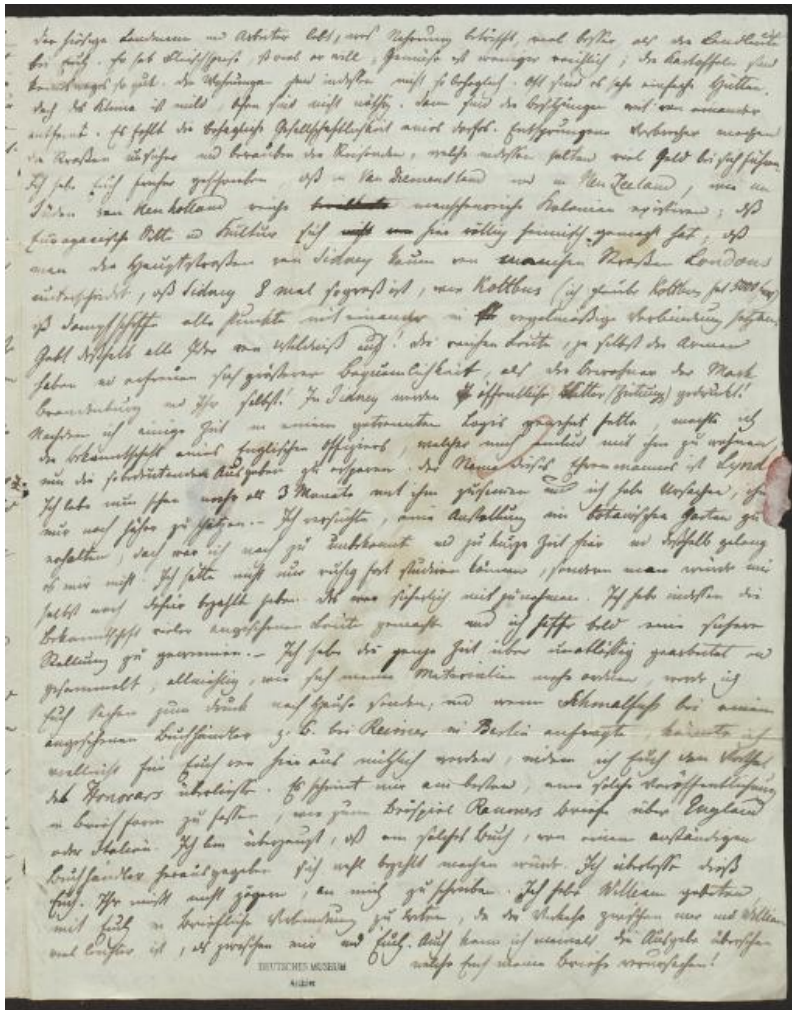 Der hiesige Landmann und Arbeiter lebt, was Nahrung betrifft, viel besser als die Landleute
bei Euch. Er hat Fleischspeise, so viel er will, Gemüse ist weniger reichlich; die Kartoffeln sind
keineswegs so gut. Die Wohnungen sind indessen nicht so behaglich. Oft sind es sehr einfache Hütten,
doch das Klima ist mild, Öfen sind nicht nöthig. Dann sind die Besitzungen weit von einander
entfernt. Es fehlt die behagliche Gesellschaftlichkeit eines Dorfes. Entsprungene Verbrecher machen
die Straßen unsicher und berauben die Reisenden, welche indessen selten viel Geld bei sich führen.
Ich habe Euch früher geschrieben, daß in Van Diemensland und in Neu Zeeland, wie im
Süden von Neuholland reiche menschenreiche Kolonien existiren; daß
Europaeische Sitte und Kultur sich hier völlig heimisch gemacht hat; daß
man die Hauptstraßen von Sidney kaum von manchen Straßen Londons
unterscheidet, daß Sidney 8 mal so groß ist, wie Kottbus (ich glaube Kottbus hat 5000 )
daß Dampfschiffe alle Punkte mit einander in regelmäßige Verbindung setzen.
Gebt deshalb alle Idee von Wildniß auf! Die reichen Leute, ja selbst die Armen
haben und erfreuen sich größerer Bequemlichkeit, als die Bewohner der Mark
Brandenburg und Ihr selbst! In Sidney werden öffentliche Blätter (Zeitung) gedruckt!
Nachdem ich einige Zeit in einem getrennten Logis gewohnt hatte, machte ich
die Bekanntschaft eines Englischen Offiziers, welcher mich einlud mit ihm zu wohnen,
um die Ausgaben zu ersparen. Der Name dieses Ehrenmannes ist Lynd.
Ich lebe nun schon mehr als 3 Monate mit ihm zusammen und ich habe Ursachen, ihn
nur noch höher zu schätzen. – Ich versuchte, eine Anstellung am botanischen Garten zu
erhalten, doch war ich noch zu unbekannt und zu kurze Zeit hier und deßhalb gelang
es mir nicht. Ich hätte nicht nur ruhig fort studiren können, sondern man würde mir
selbst noch dafür bezahlt haben. Das war sicherlich mitzunehmen. Ich habe indessen die
Bekanntschaft vieler angesehener Leute gemacht und ich hoffe bald eine sichere
Stellung zu gewinnen. – Ich habe die ganze Zeit über unablässig gearbeitet und
gesammelt, allmählig, wie sich meine Materialien mehr ordnen, werde ich
Euch Sachen zum Druck nach Hause senden; und wenn Schmalfuß bei einem
angesehenen Buchhändler z. B. bei Reimer in Berlin anfragte, könnte ich
vielleicht für Euch von hier aus nützlich werden, indem ich Euch den Vortheil
des Honorars überließe. Es scheint mir am besten, eine solche Veröffentlichung
in Briefform zu fassen, wie zum Beispiel Raumers Briefe über England
oder Italien. Ich bin überzeugt, daß ein solches Buch, von einem anständigen
Buchhändler herausgegeben sich wohl bezahlt machen würde. Ich überlasse dieß
Euch. Ihr müßt nicht zögern, an mich zu schreiben. Ich habe William gebeten
mit Euch in briefliche Verbindung zu treten, da der Verkehr zwischen mir und William
viel leichter ist, als zwischen mir und Euch. Auch kann ich niemals die Ausgabe übersehen
welche Euch meine Briefe verursachen!
DEUTSCHES MUSEUM
Archiv